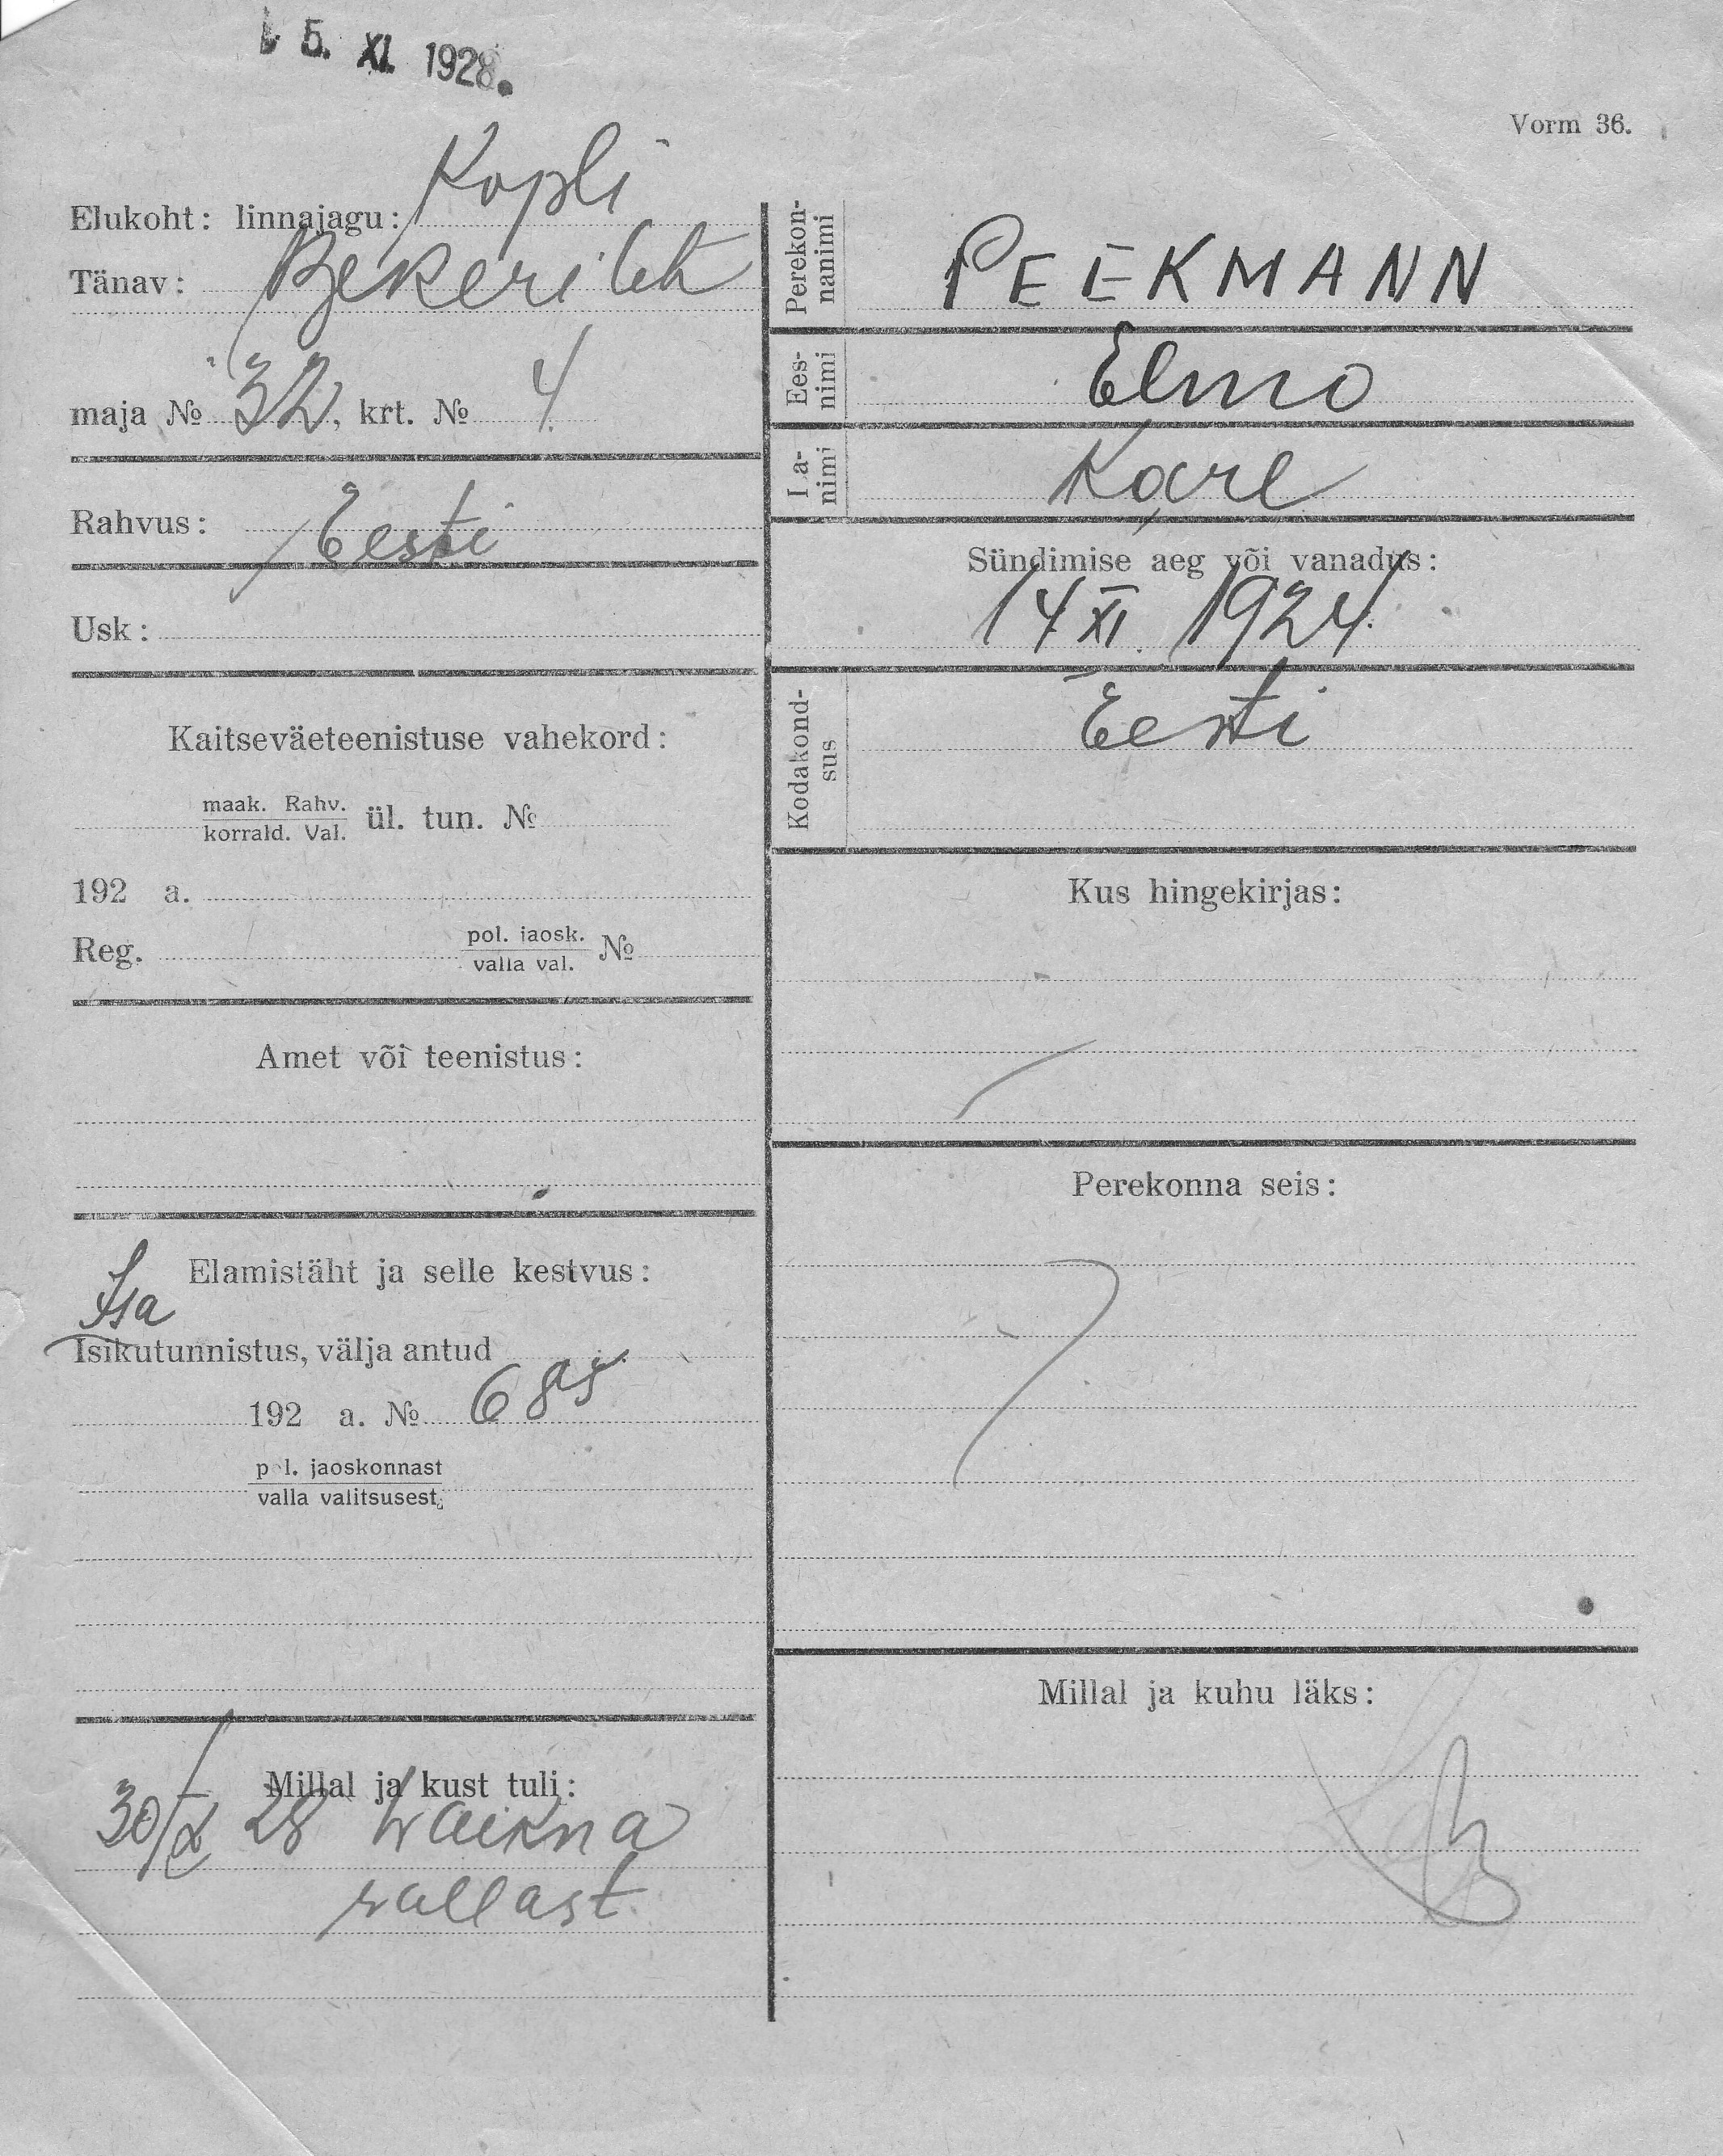 5. XI. 1928.
Vorm 36.
Elukoht: linnajagu: Kopli
Tänav: Bekeri
maja № 32, krt. № 4
Rahvus: Eesti
Usk:
Kaitseväeteenistuse vahekord:
maak. Rahv.
korrald. Val. ül. tun. №
192 a.
Reg. pol. jaosk.
valla val. №
Amet või teenistus:
Elamistäht ja selle kestvus:
Isa
Isikutunnistus, välja antud
192 a. № 685
pol. jaoskonnast
valla valitsusest,
Millal ja kust tuli:
30/X 28 Waikna
vallast
Perekon-
nanimi
PEEKMANN
Ees-
nimi
Elmo
Isa-
nimi
Karl
Sündimise aeg või vanadus:
14 XI. 1924.
Kodakond-
sus
Eesti
Kus hingekirjas:
Perekonna seis:
Millal ja kuhu läks: